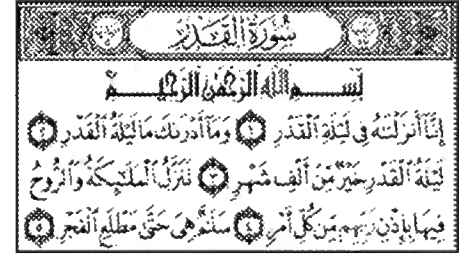 سُورَةُ الْقَدْرِ
بِسْمِ اللَّهِ الرَّحْمَٰنِ الرَّحِيمِ
إِنَّا أَنزَلْنَٰهُ فِى لَيْلَةِ الْقَدْرِ ١ وَمَا أَدْرَىٰكَ مَا لَيْلَةُ الْقَدْرِ ٢
لَيْلَةُ الْقَدْرِ خَيْرٌ مِّنْ أَلْفِ شَهْرٍ ٣ تَنَزَّلُ الْمَلَٰٓئِكَةُ وَالرُّوحُ
فِيهَا بِإِذْنِ رَبِّهِم مِّن كُلِّ أَمْرٍ ٤ سَلَٰمٌ هِىَ حَتَّىٰ مَطْلَعِ الْفَجْرِ ٥